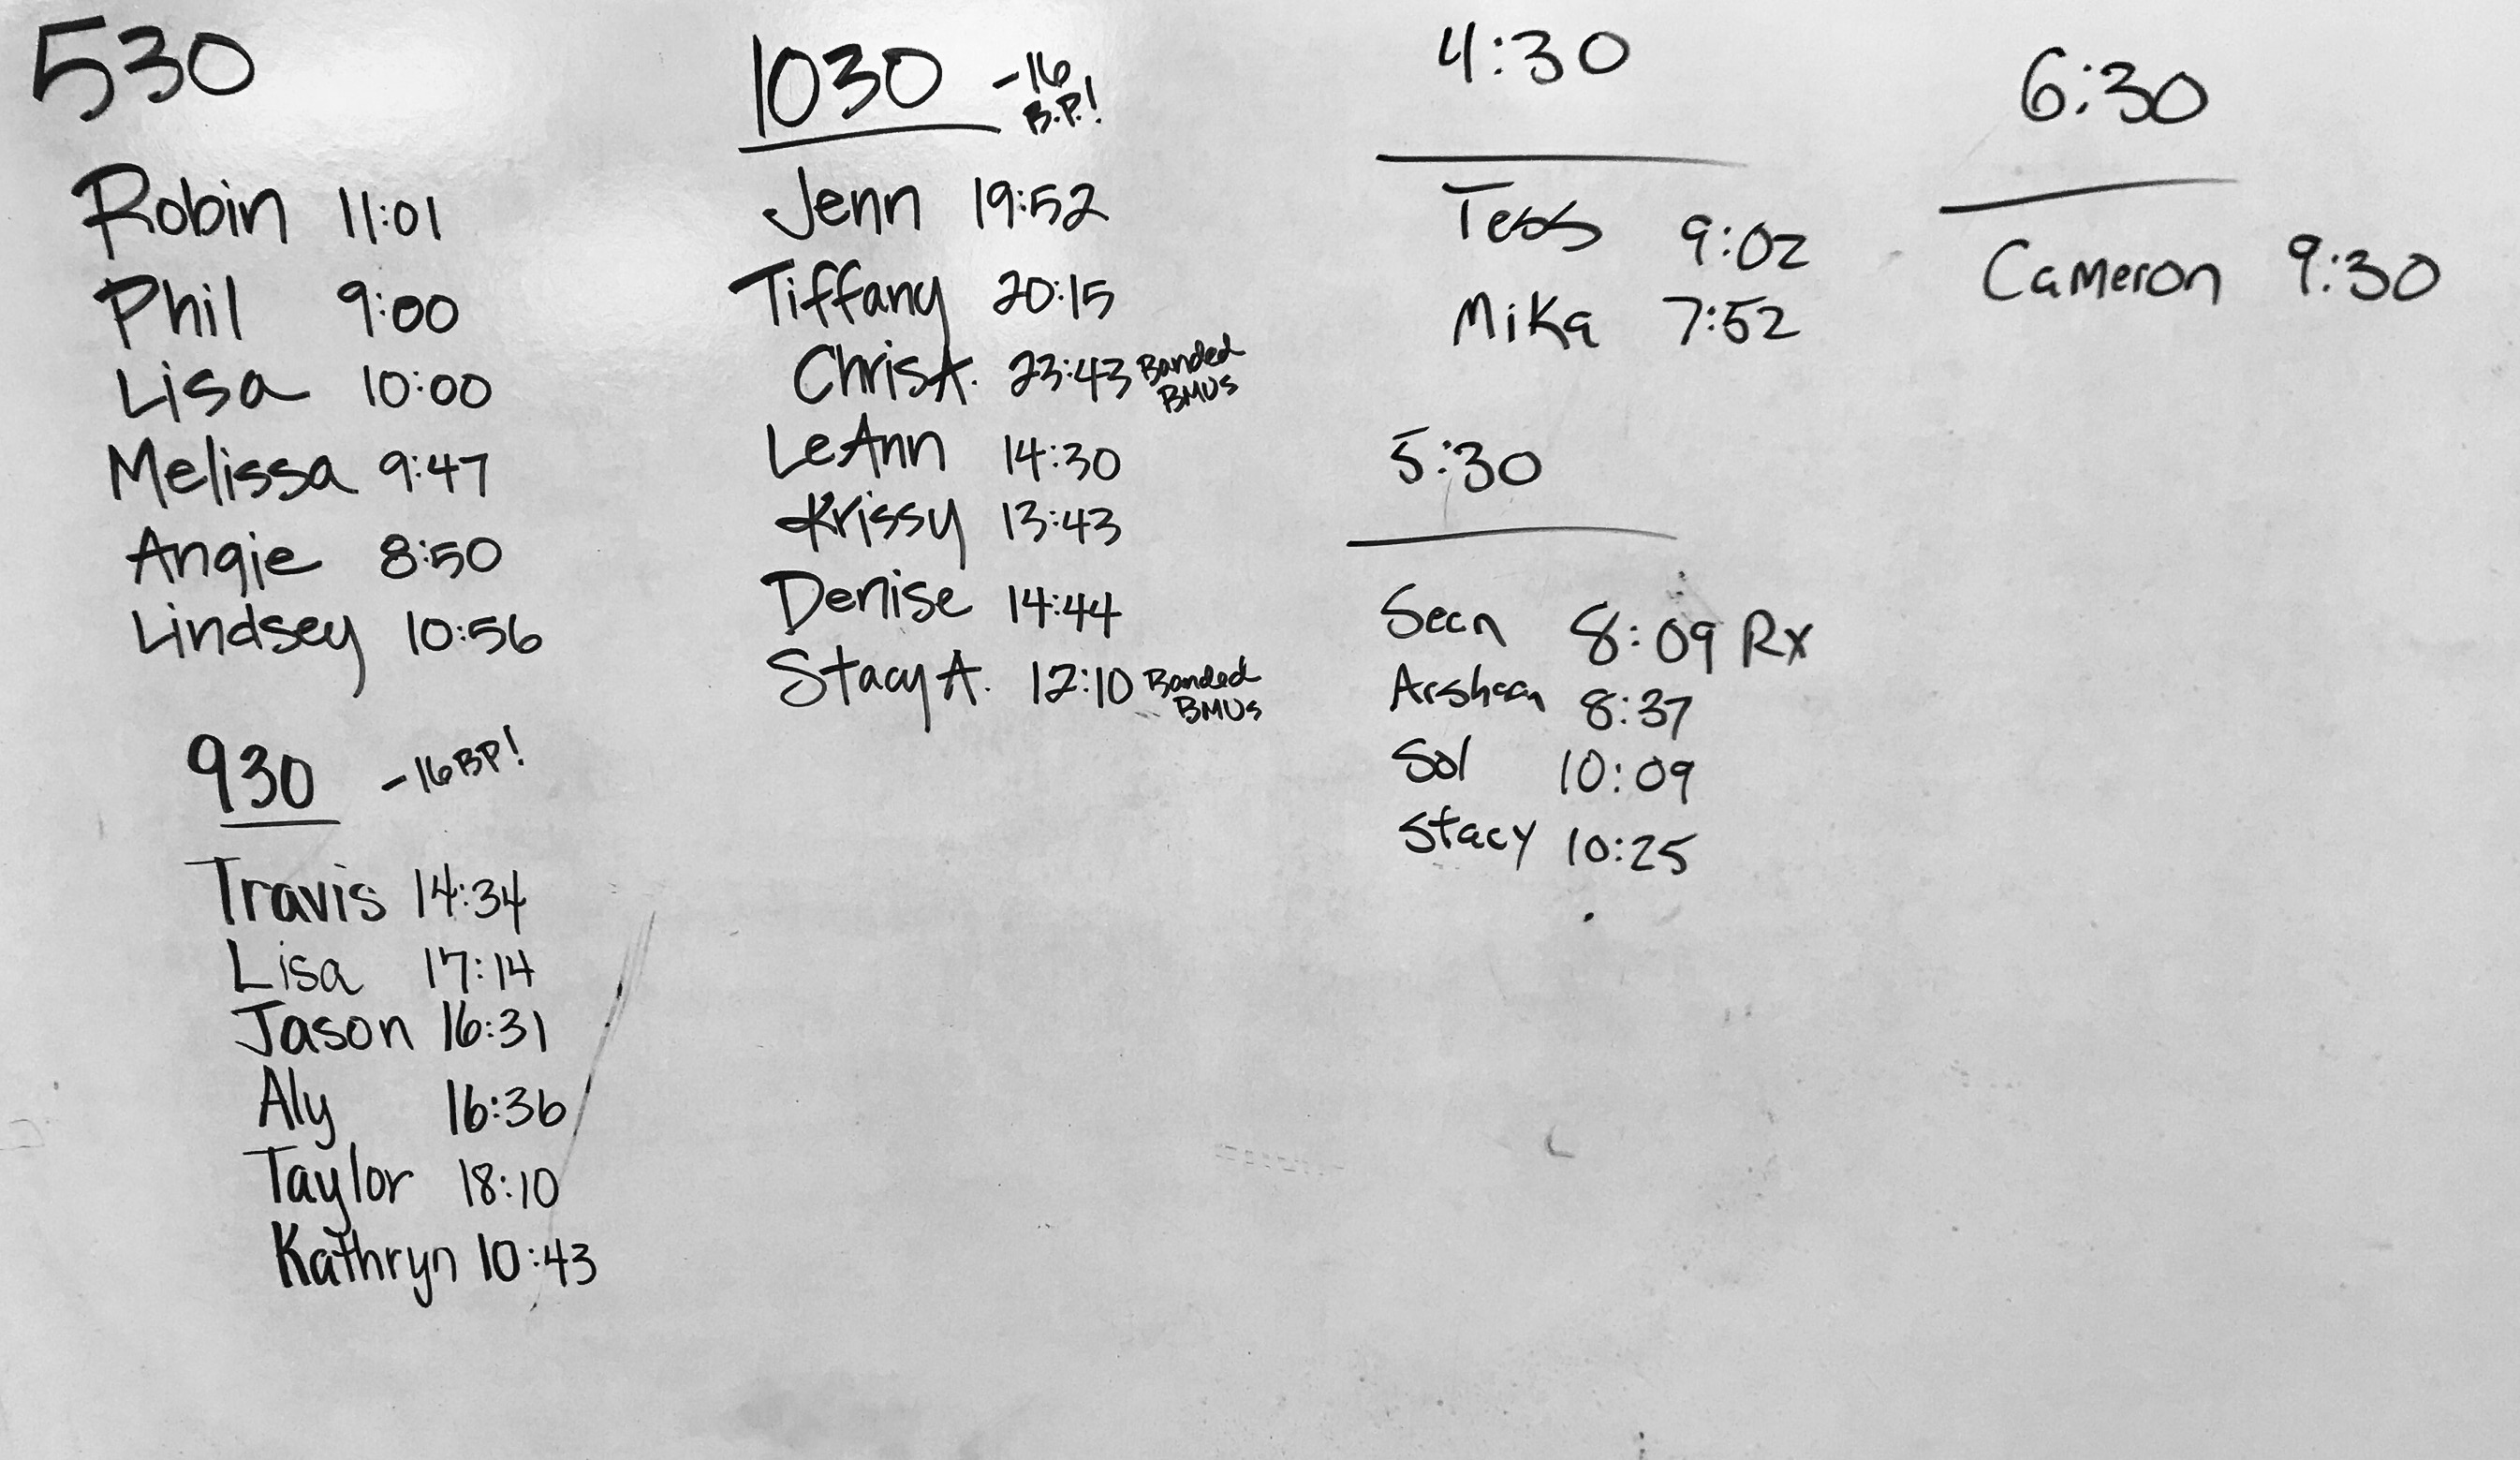 530
Robin 11:01
Phil 9:00
Lisa 10:00
Melissa 9:47
Angie 8:50
Lindsey 10:56
930 -16 BP!
Travis 14:34
Lisa 17:14
Jason 16:31
Aly 16:36
Taylor 18:10
Kathryn 10:43
1030 -16
B.P.!
Jenn 19:52
Tiffany 20:15
Chris A. 23:43 Banded
BMUs
LeAnn 14:30
Krissy 13:43
Denise 14:44
Stacy A. 12:10 Banded
BMUs
4:30
Tess 9:02
Mika 7:52
5:30
Sean 8:09 Rx
8:37
Sol 10:09
Stacy 10:25
6:30
Cameron 9:30